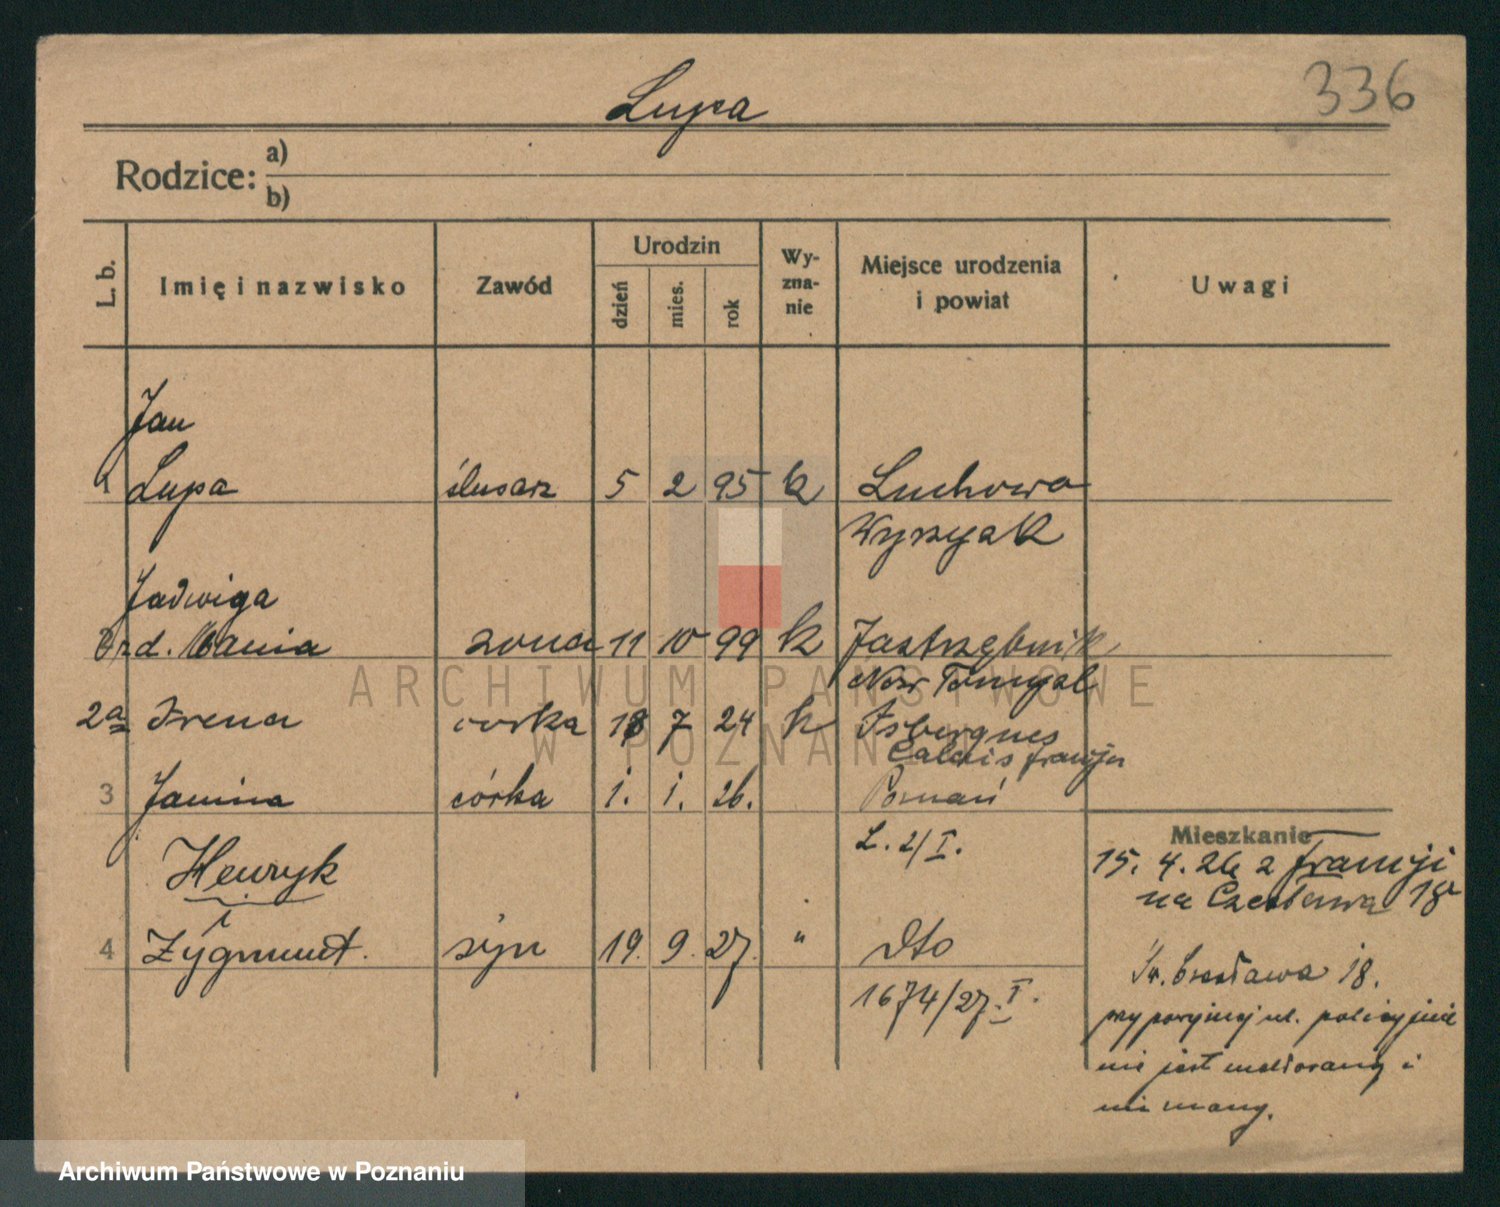 336
Lupa
Rodzice: a)
b)
L. b. Imię i nazwisko Zawód Urodzin dzień mies. rok Wy-zna-nie Miejsce urodzenia i powiat Uwagi
Jan
1 Lupa ślusarz 5 2 95 k Luchowo
Wyrzysk
Jadwiga
2 rd. Mania żona 11 10 99 k Jastrzębnik
Now Tomysl
2a Irena corka 18 7 24 k Isbergues
Calais francja
3 Janina córka 1. 1. 26. Poznań
L. 2/I.
Mieszkanie
15. 4. 26 z Francji
na Czesława 18
Henryk
4 Zygmunt. syn 19. 9. 27. " dto
1674/27. I.
Św. Czesława 18.
przy ul. policyjnie
nie jest meldorany i
nie znany.
ARCHIWUM PAŃSTWOWE
W POZNANIU
Archiwum Państwowe w Poznaniu